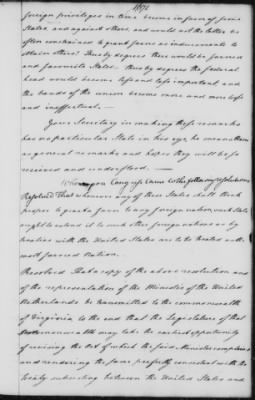 foreign privileges in time become in favor of some
States and against others, and would not the latter be
often constrained to grant favors as inducements to
others also? thus by degrees there would be favored
and favorite States. thus by degrees the federal
head would become less and less important and
the bands of the union become more and more loose
and ineffectual.
Your Secretary in making these remarks
has no particular State in his eye, he means them
as general remarks and hopes they will be so
received and understood.
Whereupon Congress came to the following resolutions
Resolved That whenever any of these States shall think
proper to grant a favor to any foreign nation, such State
ought to extend it to such other foreign nations as by
treaties with the United States are to be treated as the
most favored Nation.
Resolved That a copy of the above resolution and
of the representation of the Minister of the United
Netherlands be transmitted to the commonwealth
of Virginia to the end that the Legislature of that
commonwealth may take the earliest opportunity
of revising the Act of which the said Minister complains
and rendering the same perfectly consistent with the
treaty subsisting between the United States and